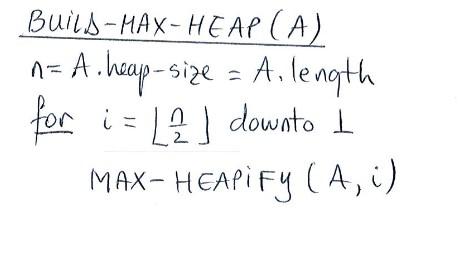 BUILD-MAX-HEAP(A)
n = A.heap-size = A.length
for i = ⌊n/2⌋ downto 1
MAX-HEAPiFY (A, i)